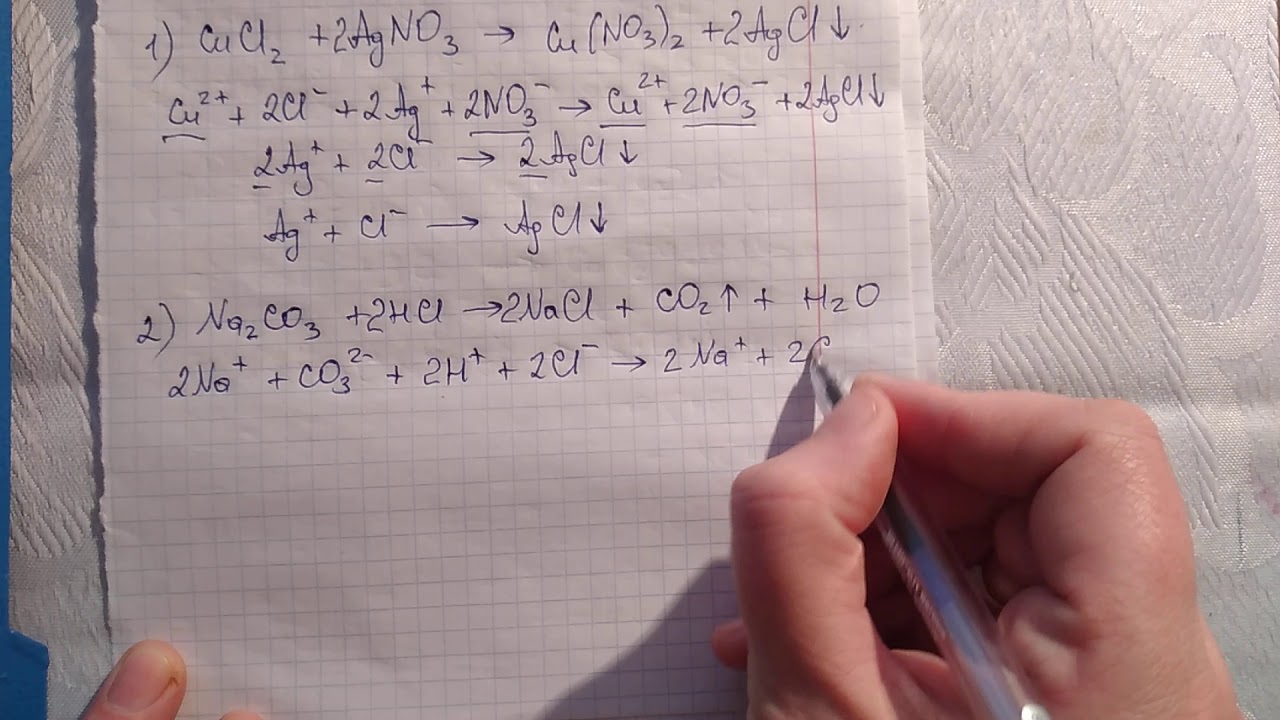 1) CuCl₂ + 2AgNO₃ → Cu(NO₃)₂ + 2AgCl↓
Cu²⁺ + 2Cl⁻ + 2Ag⁺ + 2NO₃⁻ → Cu²⁺ + 2NO₃⁻ + 2AgCl↓
2Ag⁺ + 2Cl⁻ → 2AgCl↓
Ag⁺ + Cl⁻ → AgCl↓
2) Na₂CO₃ + 2HCl → 2NaCl + CO₂↑ + H₂O
2Na⁺ + CO₃²⁻ + 2H⁺ + 2Cl⁻ → 2Na⁺ + 2C